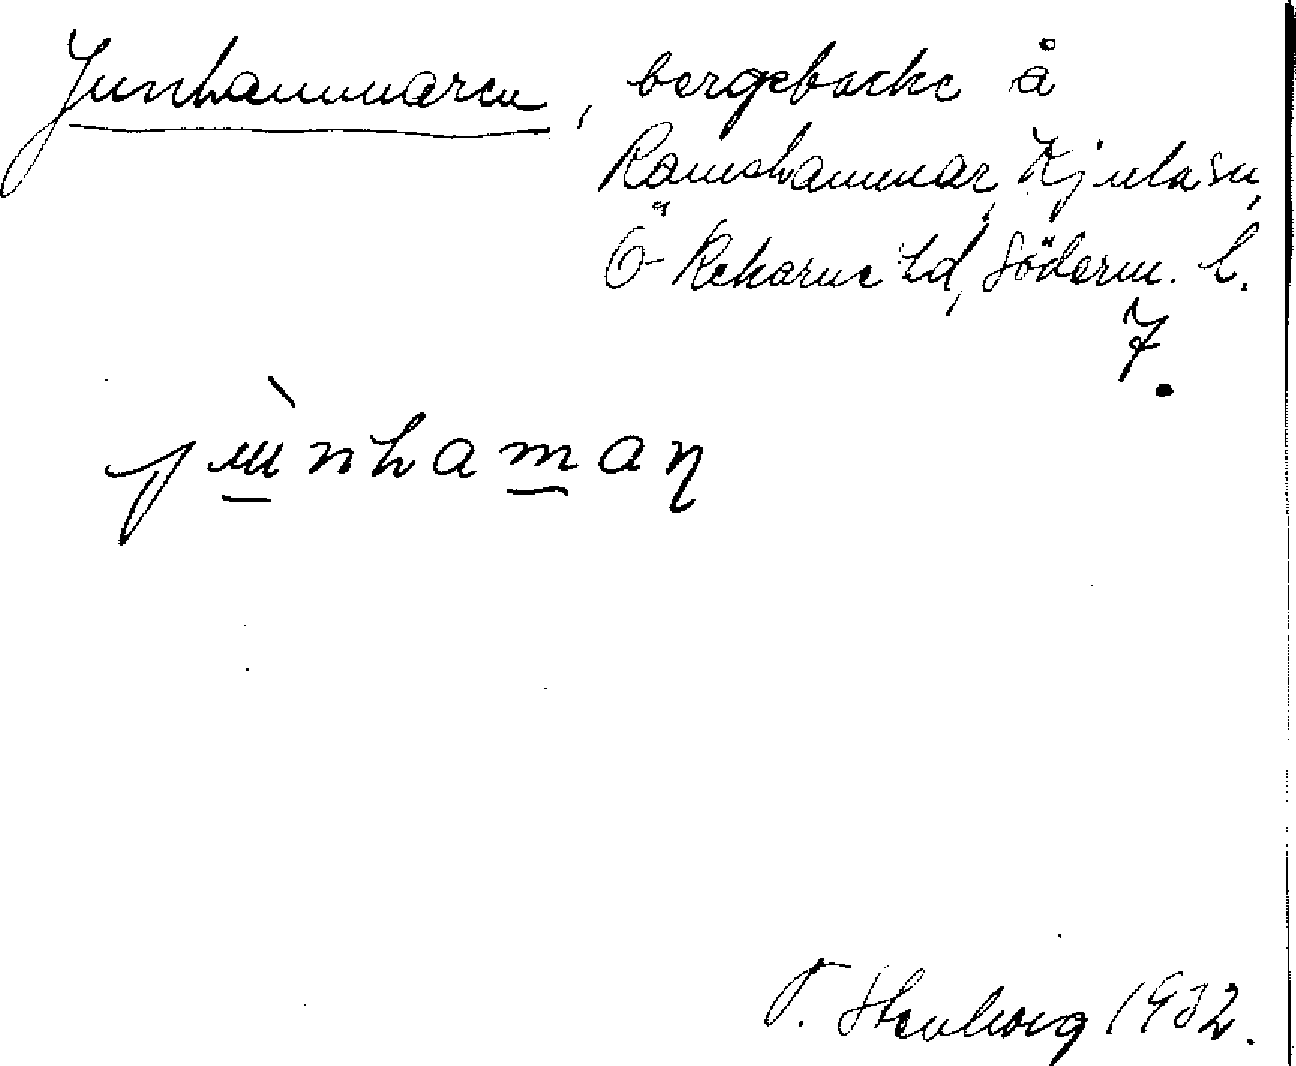 Junhammaren, bergsbacke å
Ramshammar, Kjula sn,
Ö Rekarne hd, Söderm. l.
7.
jùnhamaɳ
T. Stenberg 1932.